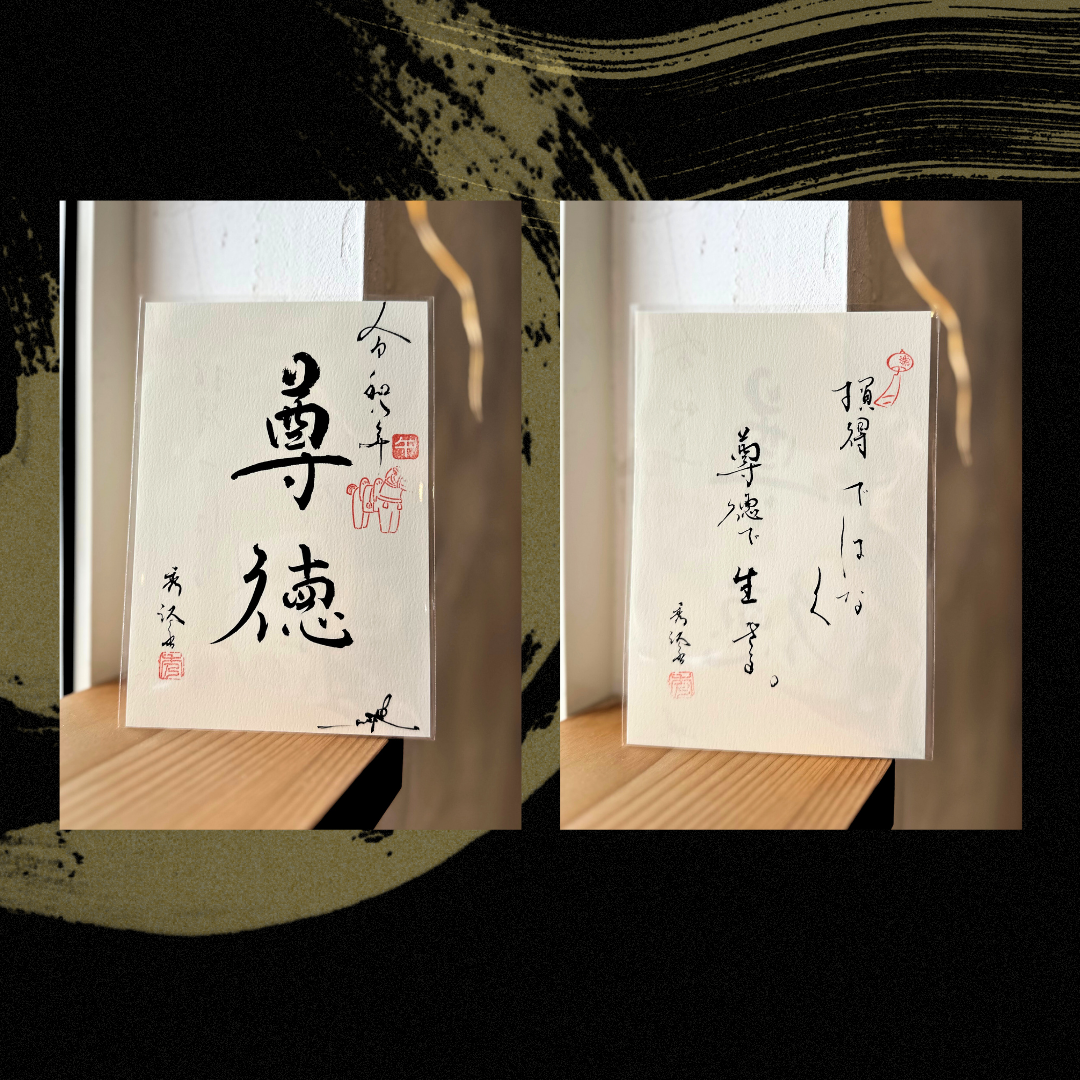 令和八年
尊徳
損得ではなく
尊徳で生きる。